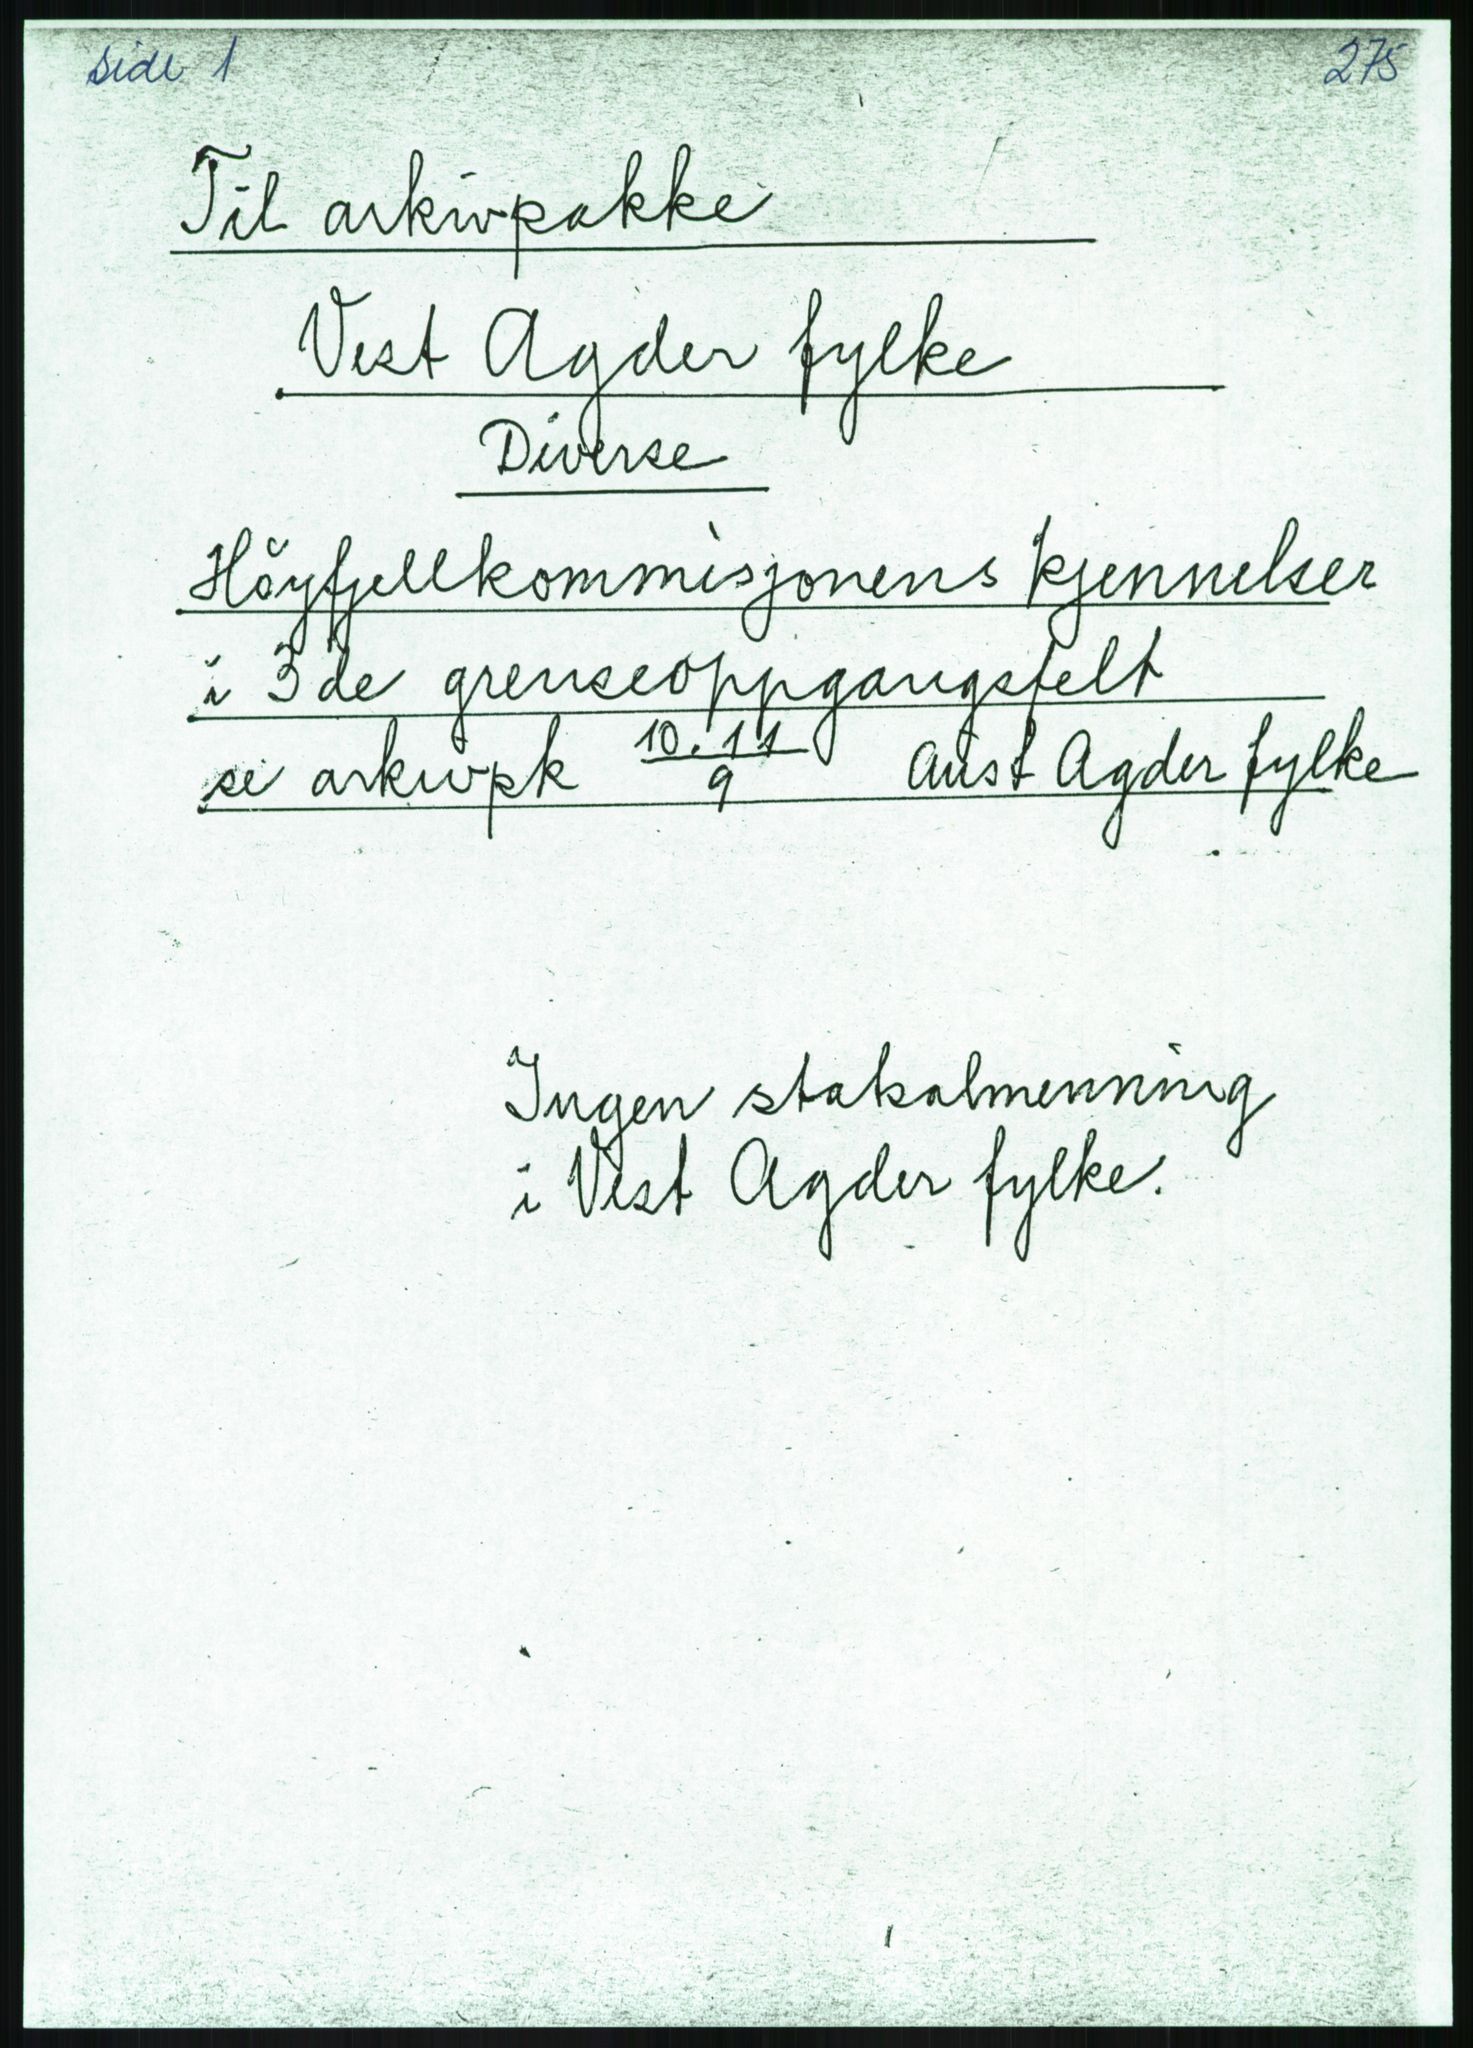 side 1
275
Til arkivpakke
Vest Agder fylke
Diverse
Höyfjellkommisjonens kjennelser
i 3de grenseoppgangsfelt
se arkivpk 10.11/9 Aust Agder fylke
Ingen statsalmenning
i Vest Agder fylke.